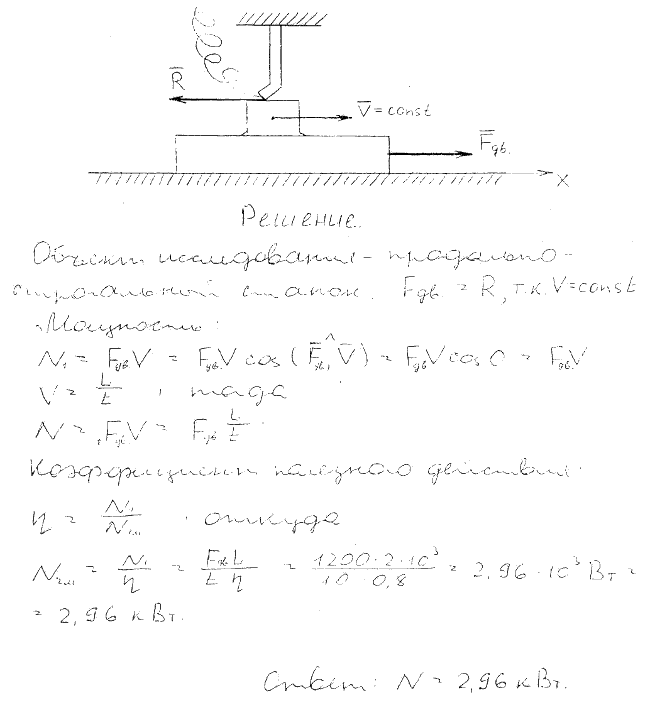 R
V = const
Fдв.
x
Решение.
Объект исследования - продольно-
строгальный станок. Fдв. = R, т.к. V = const
Мощность:
N₁ = F̄дв V̄ = Fдв V cos (F̄дв, ^ V̄) = Fдв V cos 0 = Fдв V
V = L/t, тогда
N = Fдв V = Fдв L/t.
Коэффициент полезного действия:
η = N₁/Nэл, откуда
N = N₁/η = Fдв L/(t η) = 1200 · 2 · 10³/(10 · 0,8) = 2,96 · 10³ Вт =
= 2,96 кВт.
Ответ: N = 2,96 кВт.